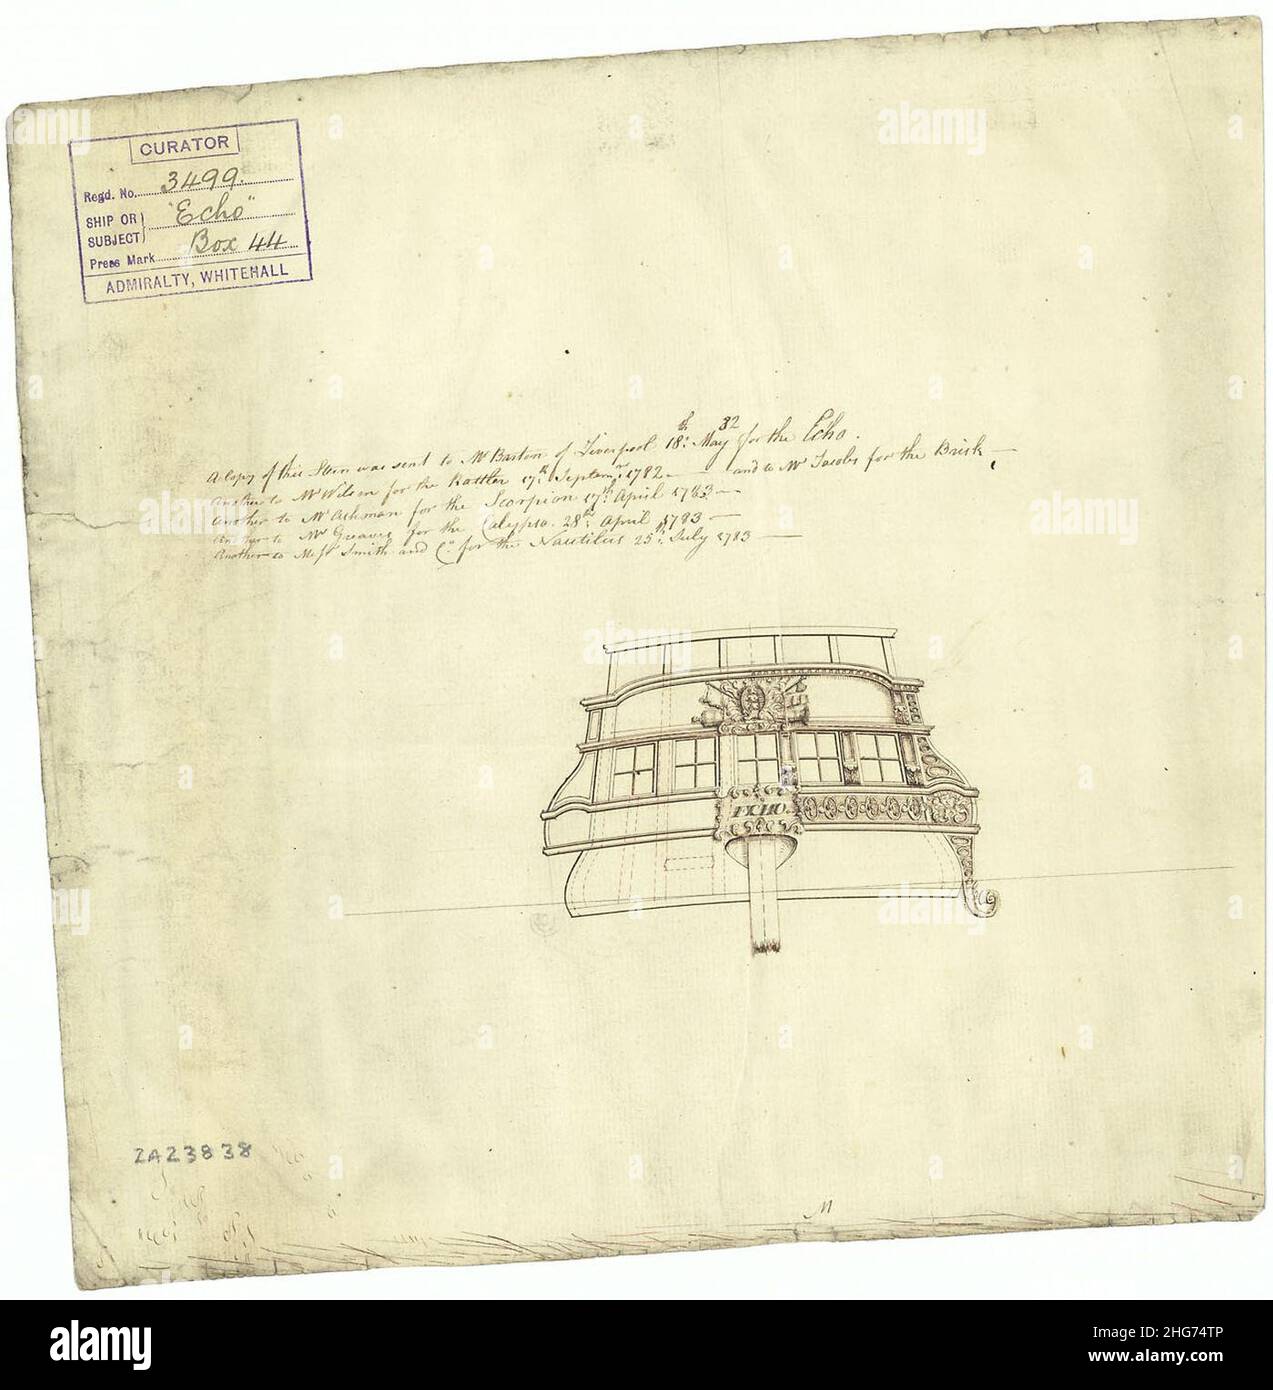 CURATOR
Regd. No. 3499.
SHIP OR SUBJECT} "Echo"
Press Mark Box 44
ADMIRALTY, WHITEHALL
A Copy of this Stern was sent to Mr Barton of Liverpool 18th: May 82 for the Echo.
Another to Mr Wilson for the Rattler 17th: Septemr 1782 — and to Mr Jacobs for the Brisk —
Another to Mr Ashman for the Scorpion 17th: April 1783 —
Another to Mr Graves for the Calypso. 28th: April 1783 —
Another to Messrs Smith and Co. for the Nautilus 25th: July 1783 —
ECHO.
ZAZ3838
M
alamy
Image ID: 2HG74TP
www.alamy.com